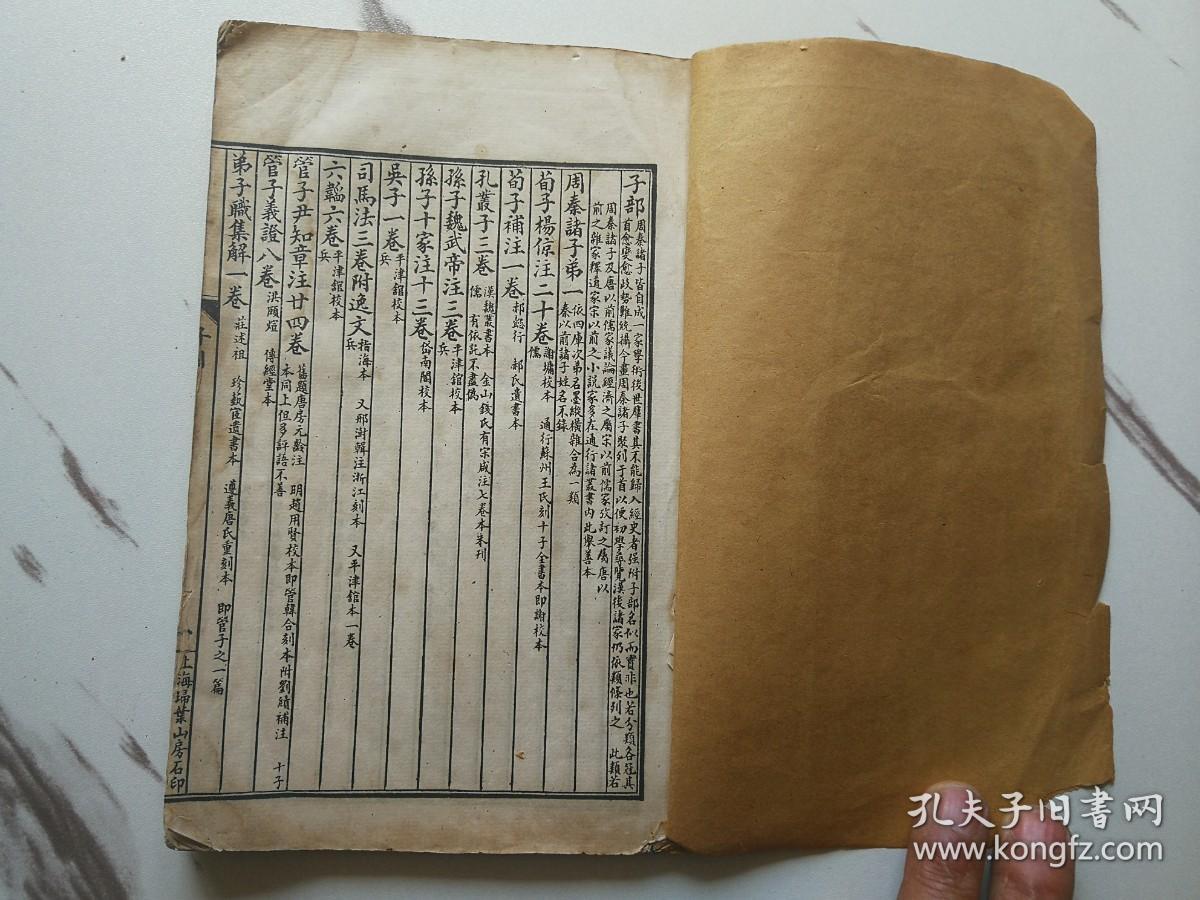 子部周秦諸子皆自成一家學術後世羣書其不能歸入經史者强附子部名似而實非也若分類各冠其
首愈變愈歧勢難統攝今畫周秦諸子聚列于首以便初學尋覽漢後諸家仍依類條列之 此類若
周秦諸子及唐以前儒家議論經濟之屬宋以前儒家攷訂之屬唐以
前之雜家釋道家宋以前之小說家多在通行諸叢書内此舉善本
周秦諸子弟一依四庫次弟名墨縱橫雜合為一類
秦以前諸子姓名不錄
荀子楊倞注二十卷謝墉校本 通行蘇州王氏刻十子全書本即謝校本
儒
荀子補注一卷郝懿行 郝氏遺書本
孔叢子三卷漢魏叢書本 金山錢氏有宋咸注七卷本未刊
儒 有依託不盡僞
孫子魏武帝注三卷平津館校本
兵
孫子十家注十三卷岱南閣校本
吳子一卷平津館校本
兵
司馬法三卷附逸文指海本 又邢澍輯注浙江刻本 又平津館本一卷
兵
六韜六卷平津館校本
兵
管子尹知章注廿四卷舊題唐房元齡注 明趙用賢校本即管韓合刻本附劉績補注 十子
本同上但多評語不善
管子義證八卷洪頤煊 傳經堂本
弟子職集解一卷莊述祖 珍蓺宧遺書本 遵義唐氏重刻本 即管子之一篇
上海埽葉山房石印
孔夫子旧书网
www.kongfz.com